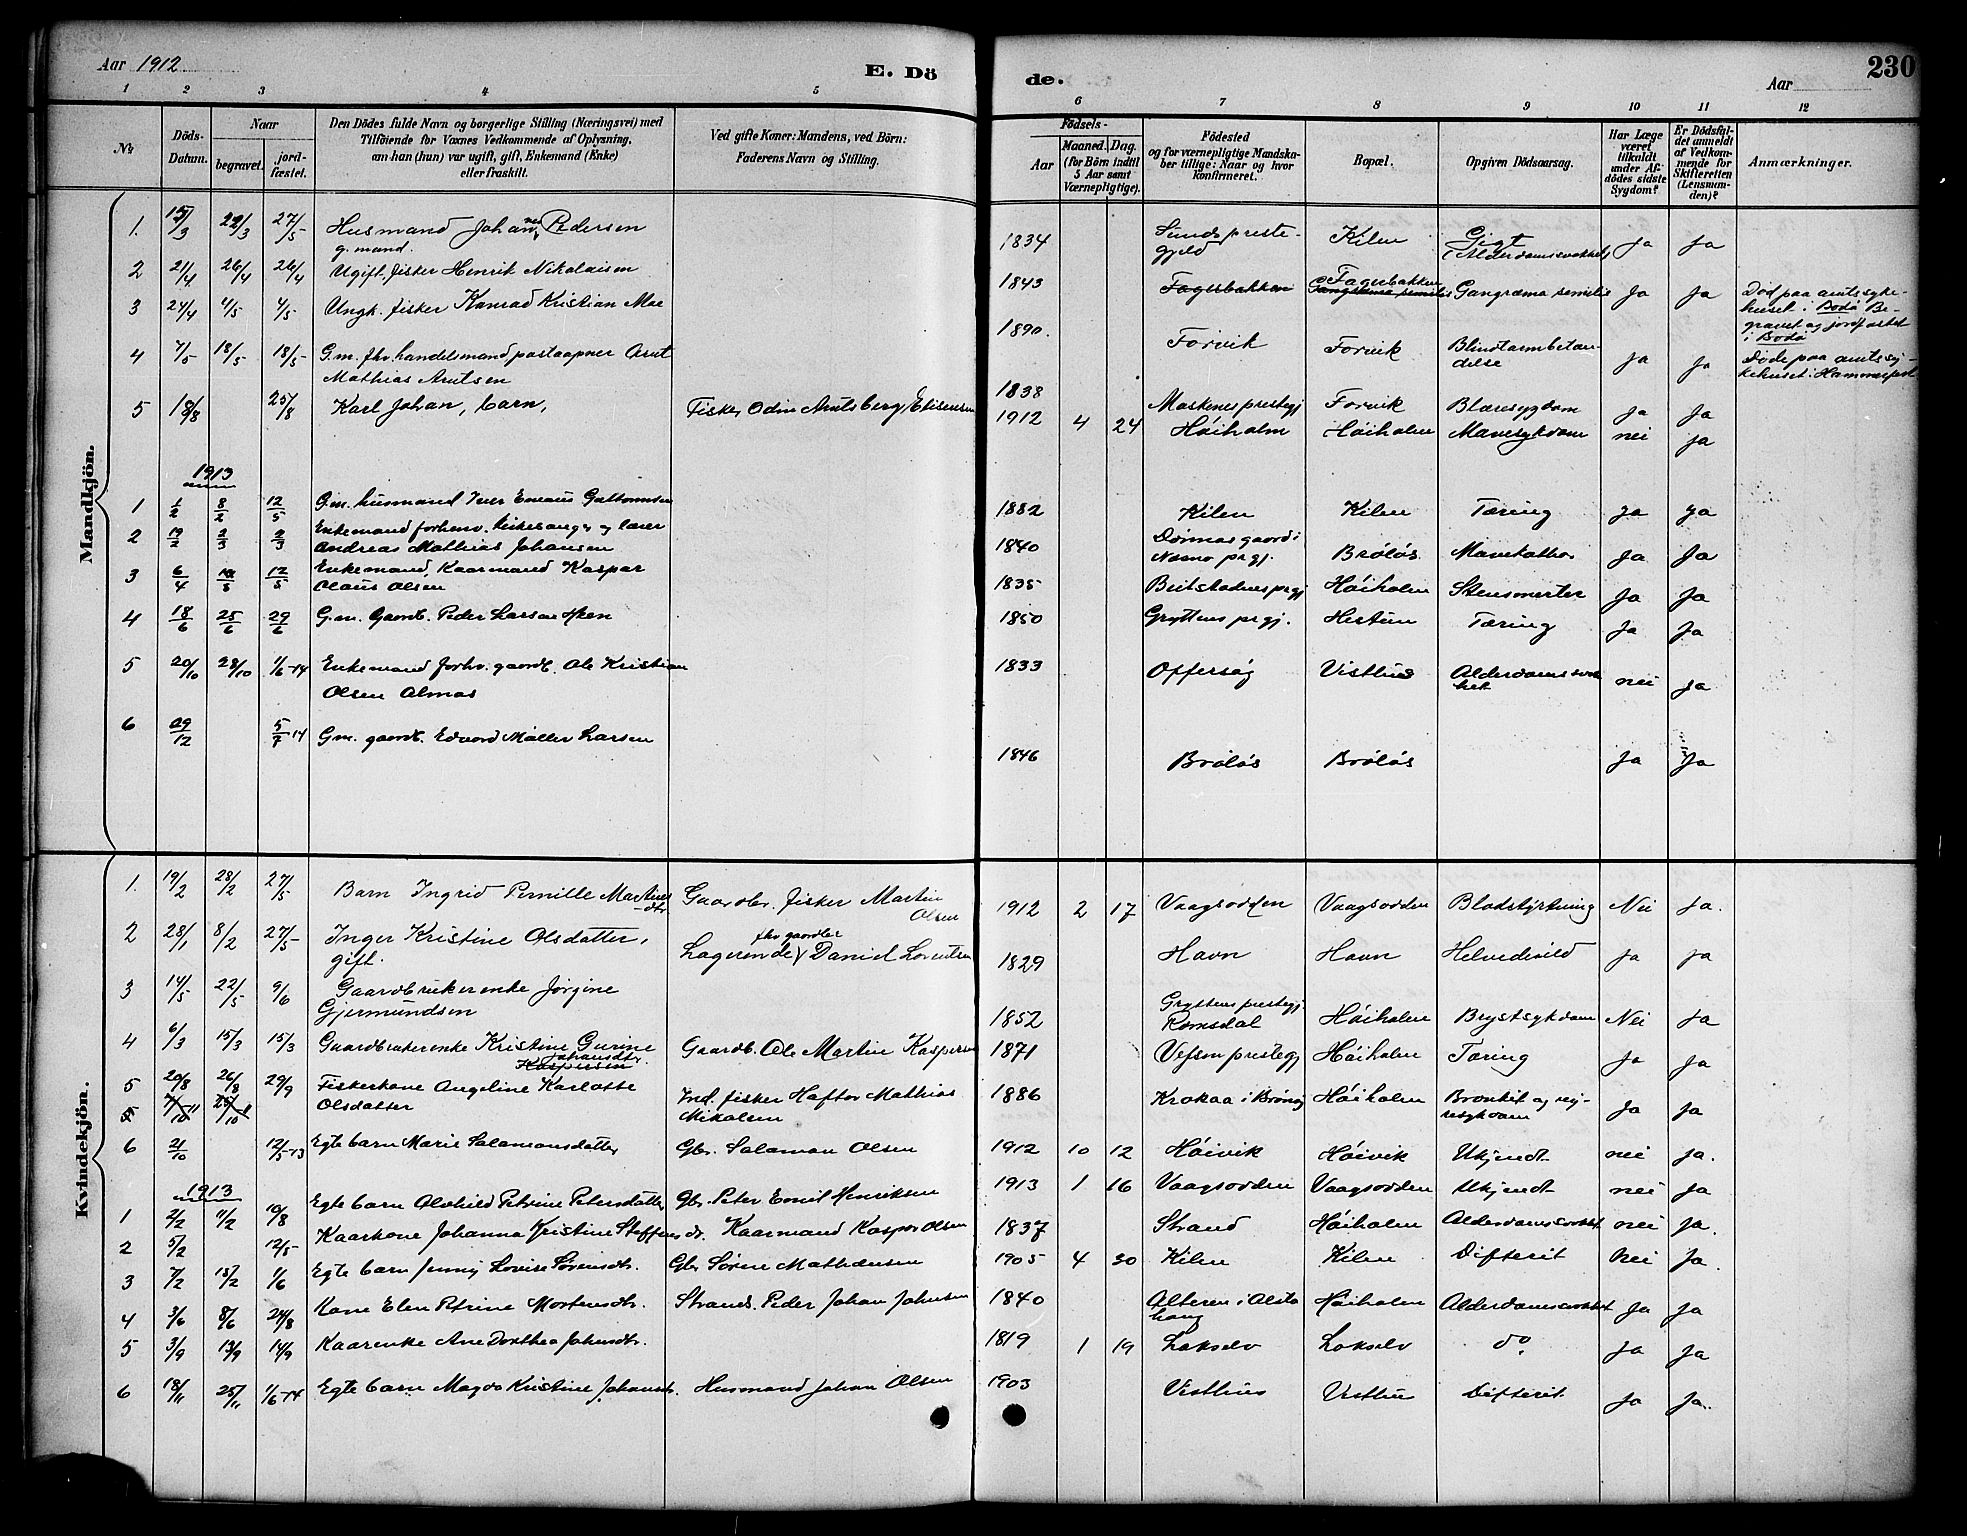 Aar 1912
E. Dö
de.
Aar
230
1 2 3 4 5 6 7 8 9 10 11 12
Nr.
Döds-Datum.
Naar
begravet.
jordfæstet.
Den Dödes fulde Navn og borgerlige Stilling (Næringsvei) med
Tilföiende for Voxnes Vedkommende af Oplysning,
om han (hun) var ugift, gift, Enkemand (Enke)
eller fraskilt.
Ved gifte Koner: Mandens, ved Börn:
Faderens Navn og Stilling.
Födsels-
Aar
Maaned. Dag.
(for Börn indtil
5 Aar samt
Værnepligtige).
Födested
og for værnepligtige Mandska-
ber tillige: Naar og hvor
konfirmeret.
Bopæl.
Opgiven Dödsaarsag.
Har Læge
været
tilkaldt
under Af-
dödes sidste
Sygdom?
Er Dödsfal-
det anmeldt
af Vedkom-
mende for
Skifteretten
(Lensman-
den)?
Anmærkninger.
Mandkjön.
1. 15/3 22/3 27/5 Husmand Johan Pedersen
g. mand.
1834 Sunds preste-
gjeld Kilen Gigt
(Alderdomssvakhet) Ja Ja
2 21/4 26/4 26/4 Ugift. fisker Henrik Nikolaisen
1843 Fagerbakken Fagerbakken Gangræna senilis Ja Ja
3 24/4 4/5 4/5 Ungk. fisker Konrad Kristian Moe
1890. Forvik Forvik Blindtarmbetæn-
delse Ja Ja
Död paa amtssyke-
huset i Bodö Be-
gravet og jordfæstet
i Bodö
4 7/5 18/5 18/5 G.m. fhv. handelsmand postaapner Arnt
Mathias Arntsen
1838 Forvik Blæresygdom Ja Ja
Döde paa amtssy-
kehuset i Hammerfest
5 18/8 25/8 Karl Johan, barn, Fisker Odin Arntsberg Elisensen
1912 4 24 Höiholm Höiholm Mavesykdom nei Ja
1913
1 1/2 8/2 12/5 G.m. husmand Iver Emaus Guttormsen
1882 Kilen Kilen Tæring Ja Ja
2 19/2 2/3 2/3 Enkemand forhenv. kirkesanger og lærer
Andreas Mathias Johansen
1840 Dönnes gaard i
Nesna prgj. Bröløs Mavekathar Ja Ja
3 6/4 12/5 Enkemand, Kaarmand Kaspar
Claus Olsen
1835 Beitstadens prgj Höiholm Stensmerter Ja Ja
4 18/6 25/6 29/6 G.m. Gaardb. Peder Larsen
1850 Gryttens prgj. Hestun Tæring Ja Ja
5 20/10 28/10 1/6-14 Enkemand forhv. gaardb. Ole Kristian
Olsen Almås
1833 Offersøy Visthus Alderdomssvak-
het nei Ja
6 29/12 5/7 14 G.m. gaardb. Edvard Möller Larsen
1846 Brøløs Brøløs Ja Ja
Kvindekjön.
1. 19/2 28/2 27/5 Barn Ingrid Pernille Martins
-dtr Gaardbr. fisker Martin
Olsen
1912 2 17 Vaagsodden Vaagsodden Blodstyrtning Nei Ja.
2 28/1 8/2 27/5 Inger Kristine Olsdatter,
gift. fhv gaardbr
Lagerende Daniel Lorentsen
1829 Havn Havn Helvedesild Ja Ja
3 14/5 22/5 9/6 Gaardbrukerenke Jörgine
Gjermundsen
1852 Gryttens prestegj
Romsdal Höiholm Brystsykdom Nei Ja
4 6/3 15/3 15/3 Gaardbrukerenke Kristine Gurine
Johansdtr
Kaspersen Gaardb. Ole Martin Kaspersen
1871 Vefsen prestegj Höiholm Tæring Ja Ja
5 20/8 26/8 29/9 Fiskerkone Angeline Karlotte
Olsdatter Ind. fisker Haftor Mathias
Mikalsen
1886 Krokaa i Brönöy Höiholm Bronkit og ny-
resykdom Ja Ja
6 2/10 12/5-13 Egte barn Marie Salamonsdatter Gbr. Salamon Olsen
1912 10 12 Höivik Höivik Ukjendt nei Ja.
1913
1 2/2 11/2 19/8 Egte barn Alvhild Petrine Petersdatter Gbr. Peter Emil Henriksen
1913 1 16 Vaagsodden Vaagsodden Ukjendt nei Ja
2 5/2 12/5 Kaarkone Johanna Kristine Steffensdr. Kaarmand Kaspar Olsen
1837 Strand Höiholm Alderdomssvakhet nei Ja.
3 7/2 15/2 1/6 Egte barn Jenny Lovise Sörensdtr. Gbr Sören Mathæusen
1905 4 30 Kilen Kilen Difterit Nei Ja.
4 3/6 8/6 24/8 Kone Elen Petrine Mortensdtr. Strands. Peder Johan Johnsen
1840 Alteren i Alsta
haug Höiholm Alderdomssvakhet Ja Ja
5 3/9 13/9 14/9 Kaarenke Ane Dorthea Johnsdtr.
1819 1 19 Lakselv Lakselv do. Ja Ja
6 18/11 25/11 1/6-14 Egte barn Magda Kristine Johansdtr. Husmand Johan Olsen
1903 Visthus Visthus Difterit Ja Ja.